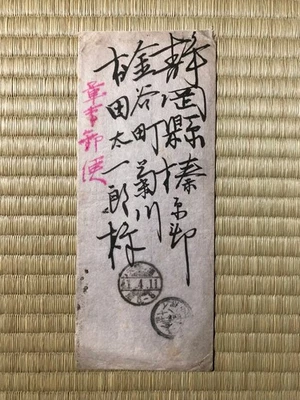 静岡縣榛原郡
金谷町菊川
吉田太一郎様
軍事郵便
4.11